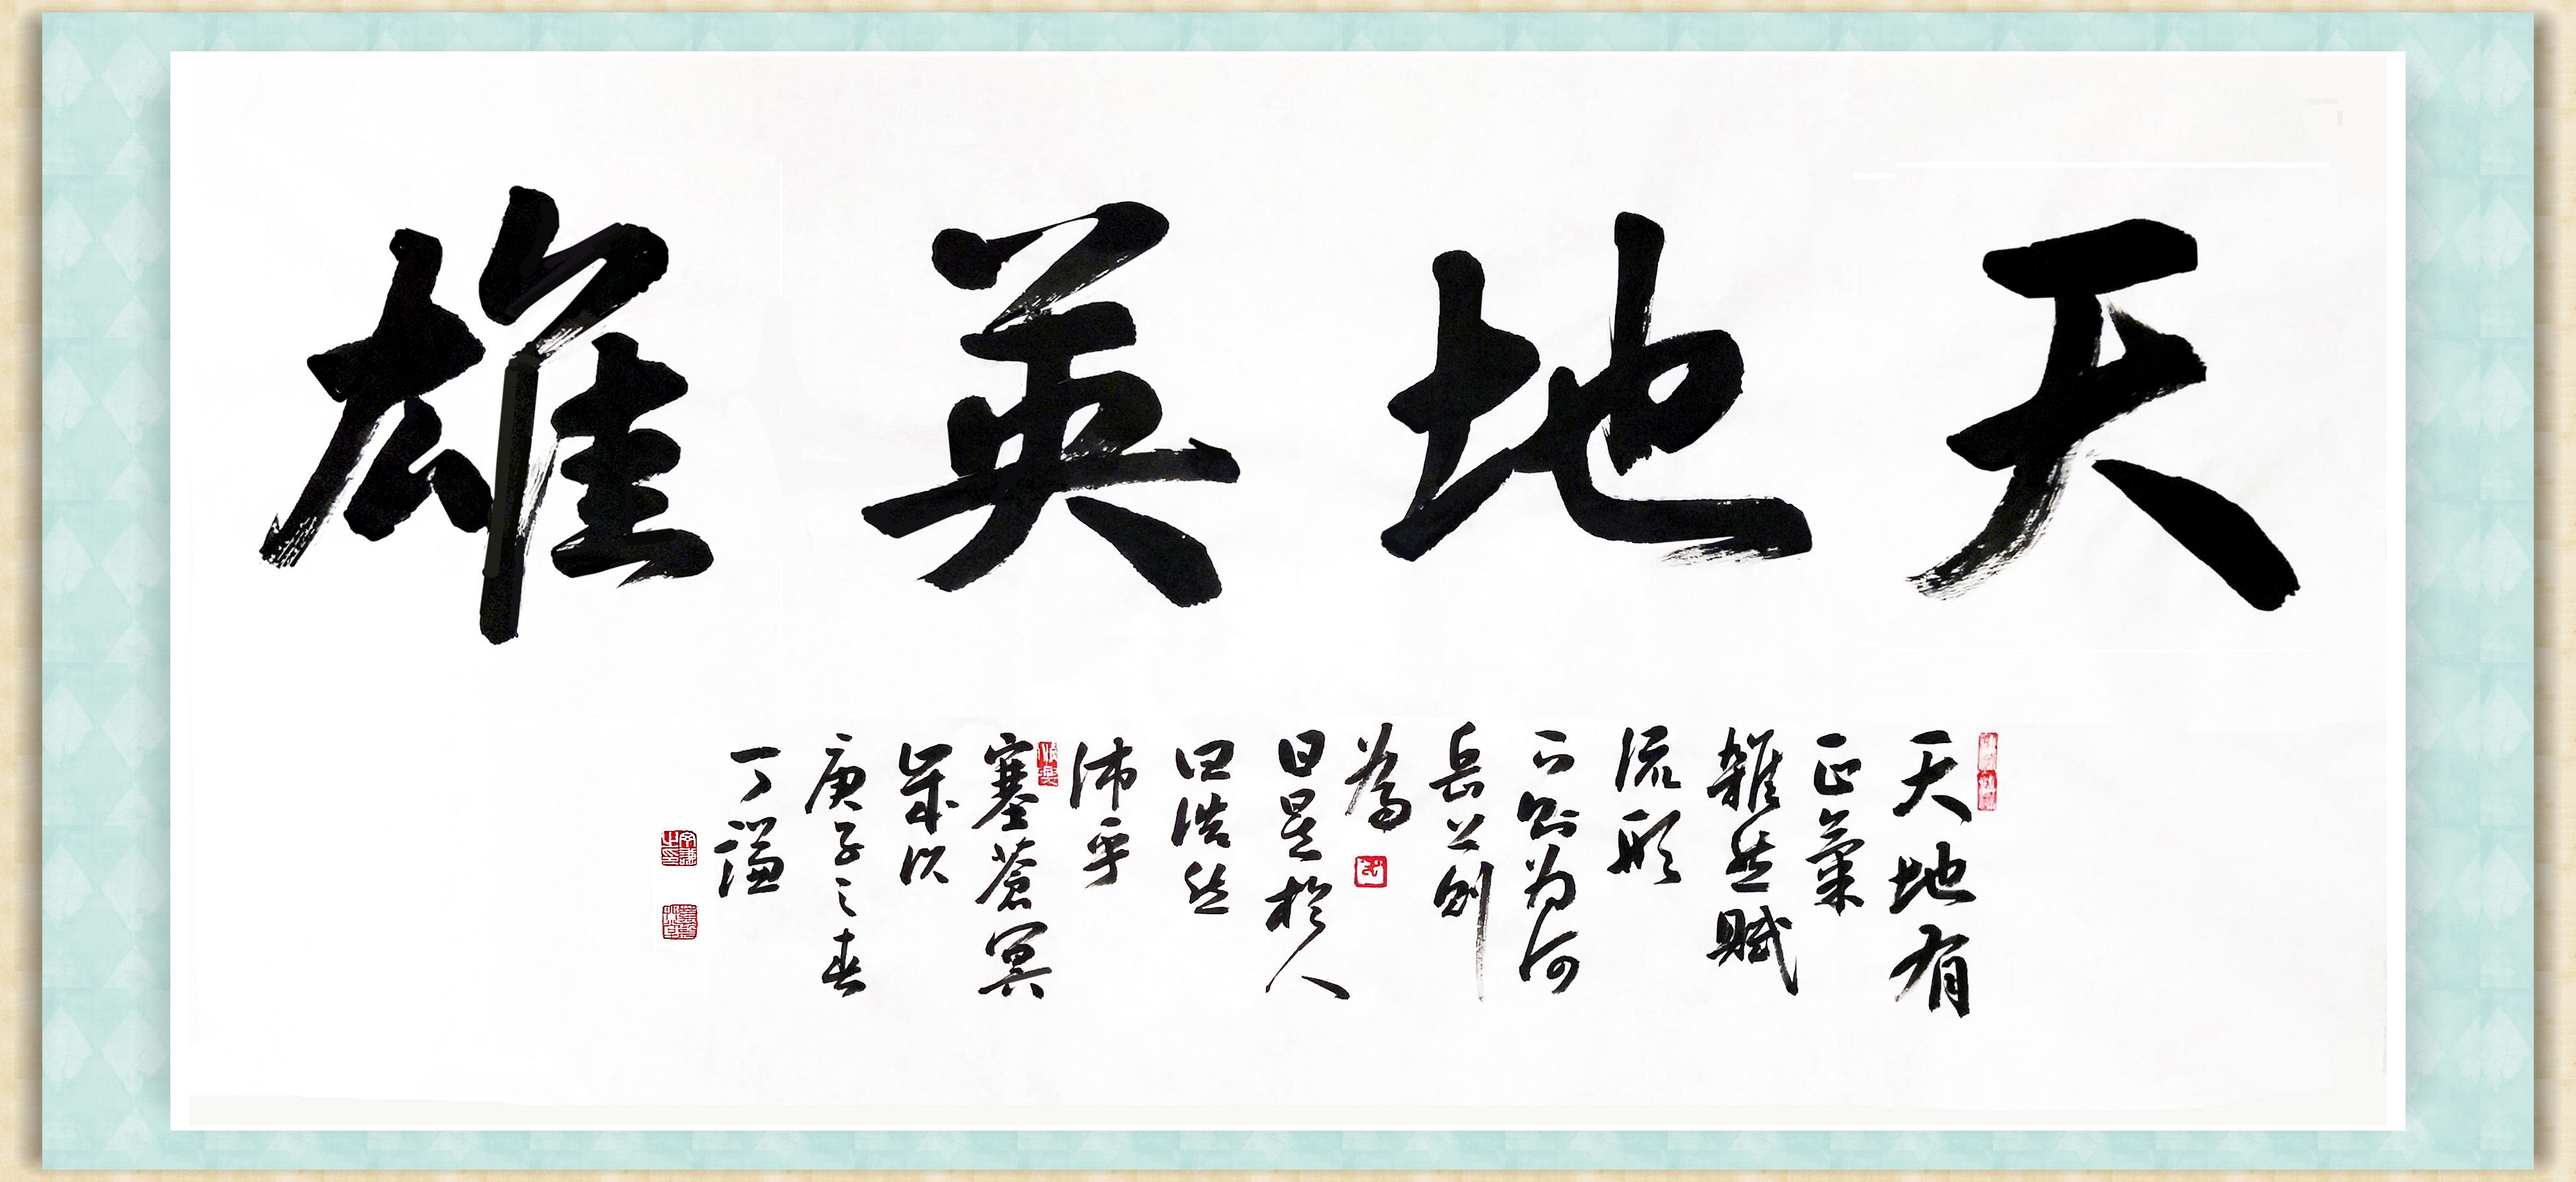 天地英雄
天地有
正氣
雜然賦
流形
下則为河
岳上則
為
日星於人
曰浩然
沛乎
塞蒼冥
歲次
庚子之春
丁謙